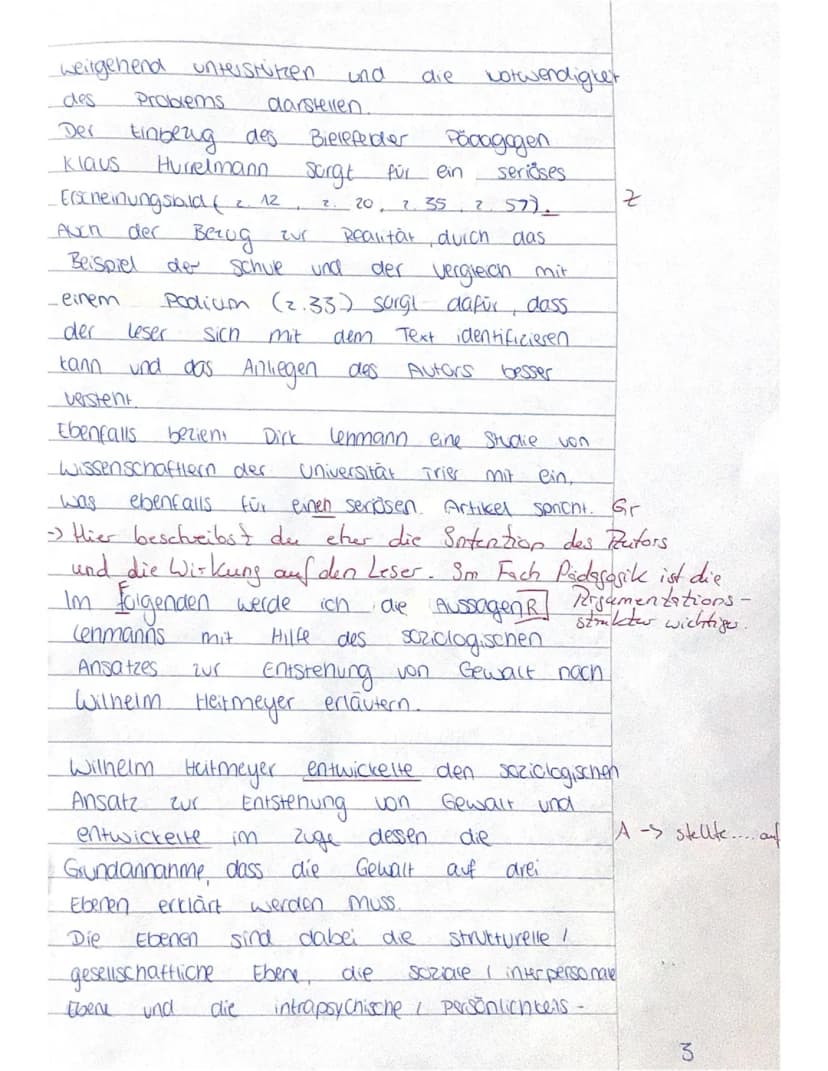 weitgehend unterstützen und die Notwendigkeit
des Problems darstellen.
Der Einbezug des Bielefelder Pädagogen
Klaus Hurrelmann sorgt für ein seriöses
Erscheinungsbild (Z. 12, Z. 20, Z. 35, Z. 57). Z
Auch der Bezug zur Realität, durch das
Beispiel der Schule und der Vergleich mit
einem Podium (Z.33) sorgt dafür, dass
der Leser sich mit dem Text identifizieren
kann und das Anliegen des Autors besser
versteht.
Ebenfalls bezieht Dirk Lehmann eine Studie von
Wissenschaftlern der Universität Trier mit ein,
was ebenfalls für einen seriösen Artikel spricht. Gr
-> Hier beschreibst du eher die Intention des Autors
und die Wirkung auf den Leser. Im Fach Pädagogik ist die
Argumentations-
struktur wichtiger.
Im Folgenden werde ich die Aussagen R
Lehmanns mit Hilfe des soziologischen
Ansatzes zur Entstehung von Gewalt nach
Wilhelm Heitmeyer erläutern.
Wilhelm Heitmeyer entwickelte den soziologischen
Ansatz zur Entstehung von Gewalt und
entwickelte im Zuge dessen die A -> stellte.... auf
Grundannahme, dass die Gewalt auf drei
Ebenen erklärt werden muss.
Die Ebenen sind dabei die strukturelle /
gesellschaftliche Ebene, die soziale / interpersonale
Ebene und die intrapsychische / Persönlichkeits-
3